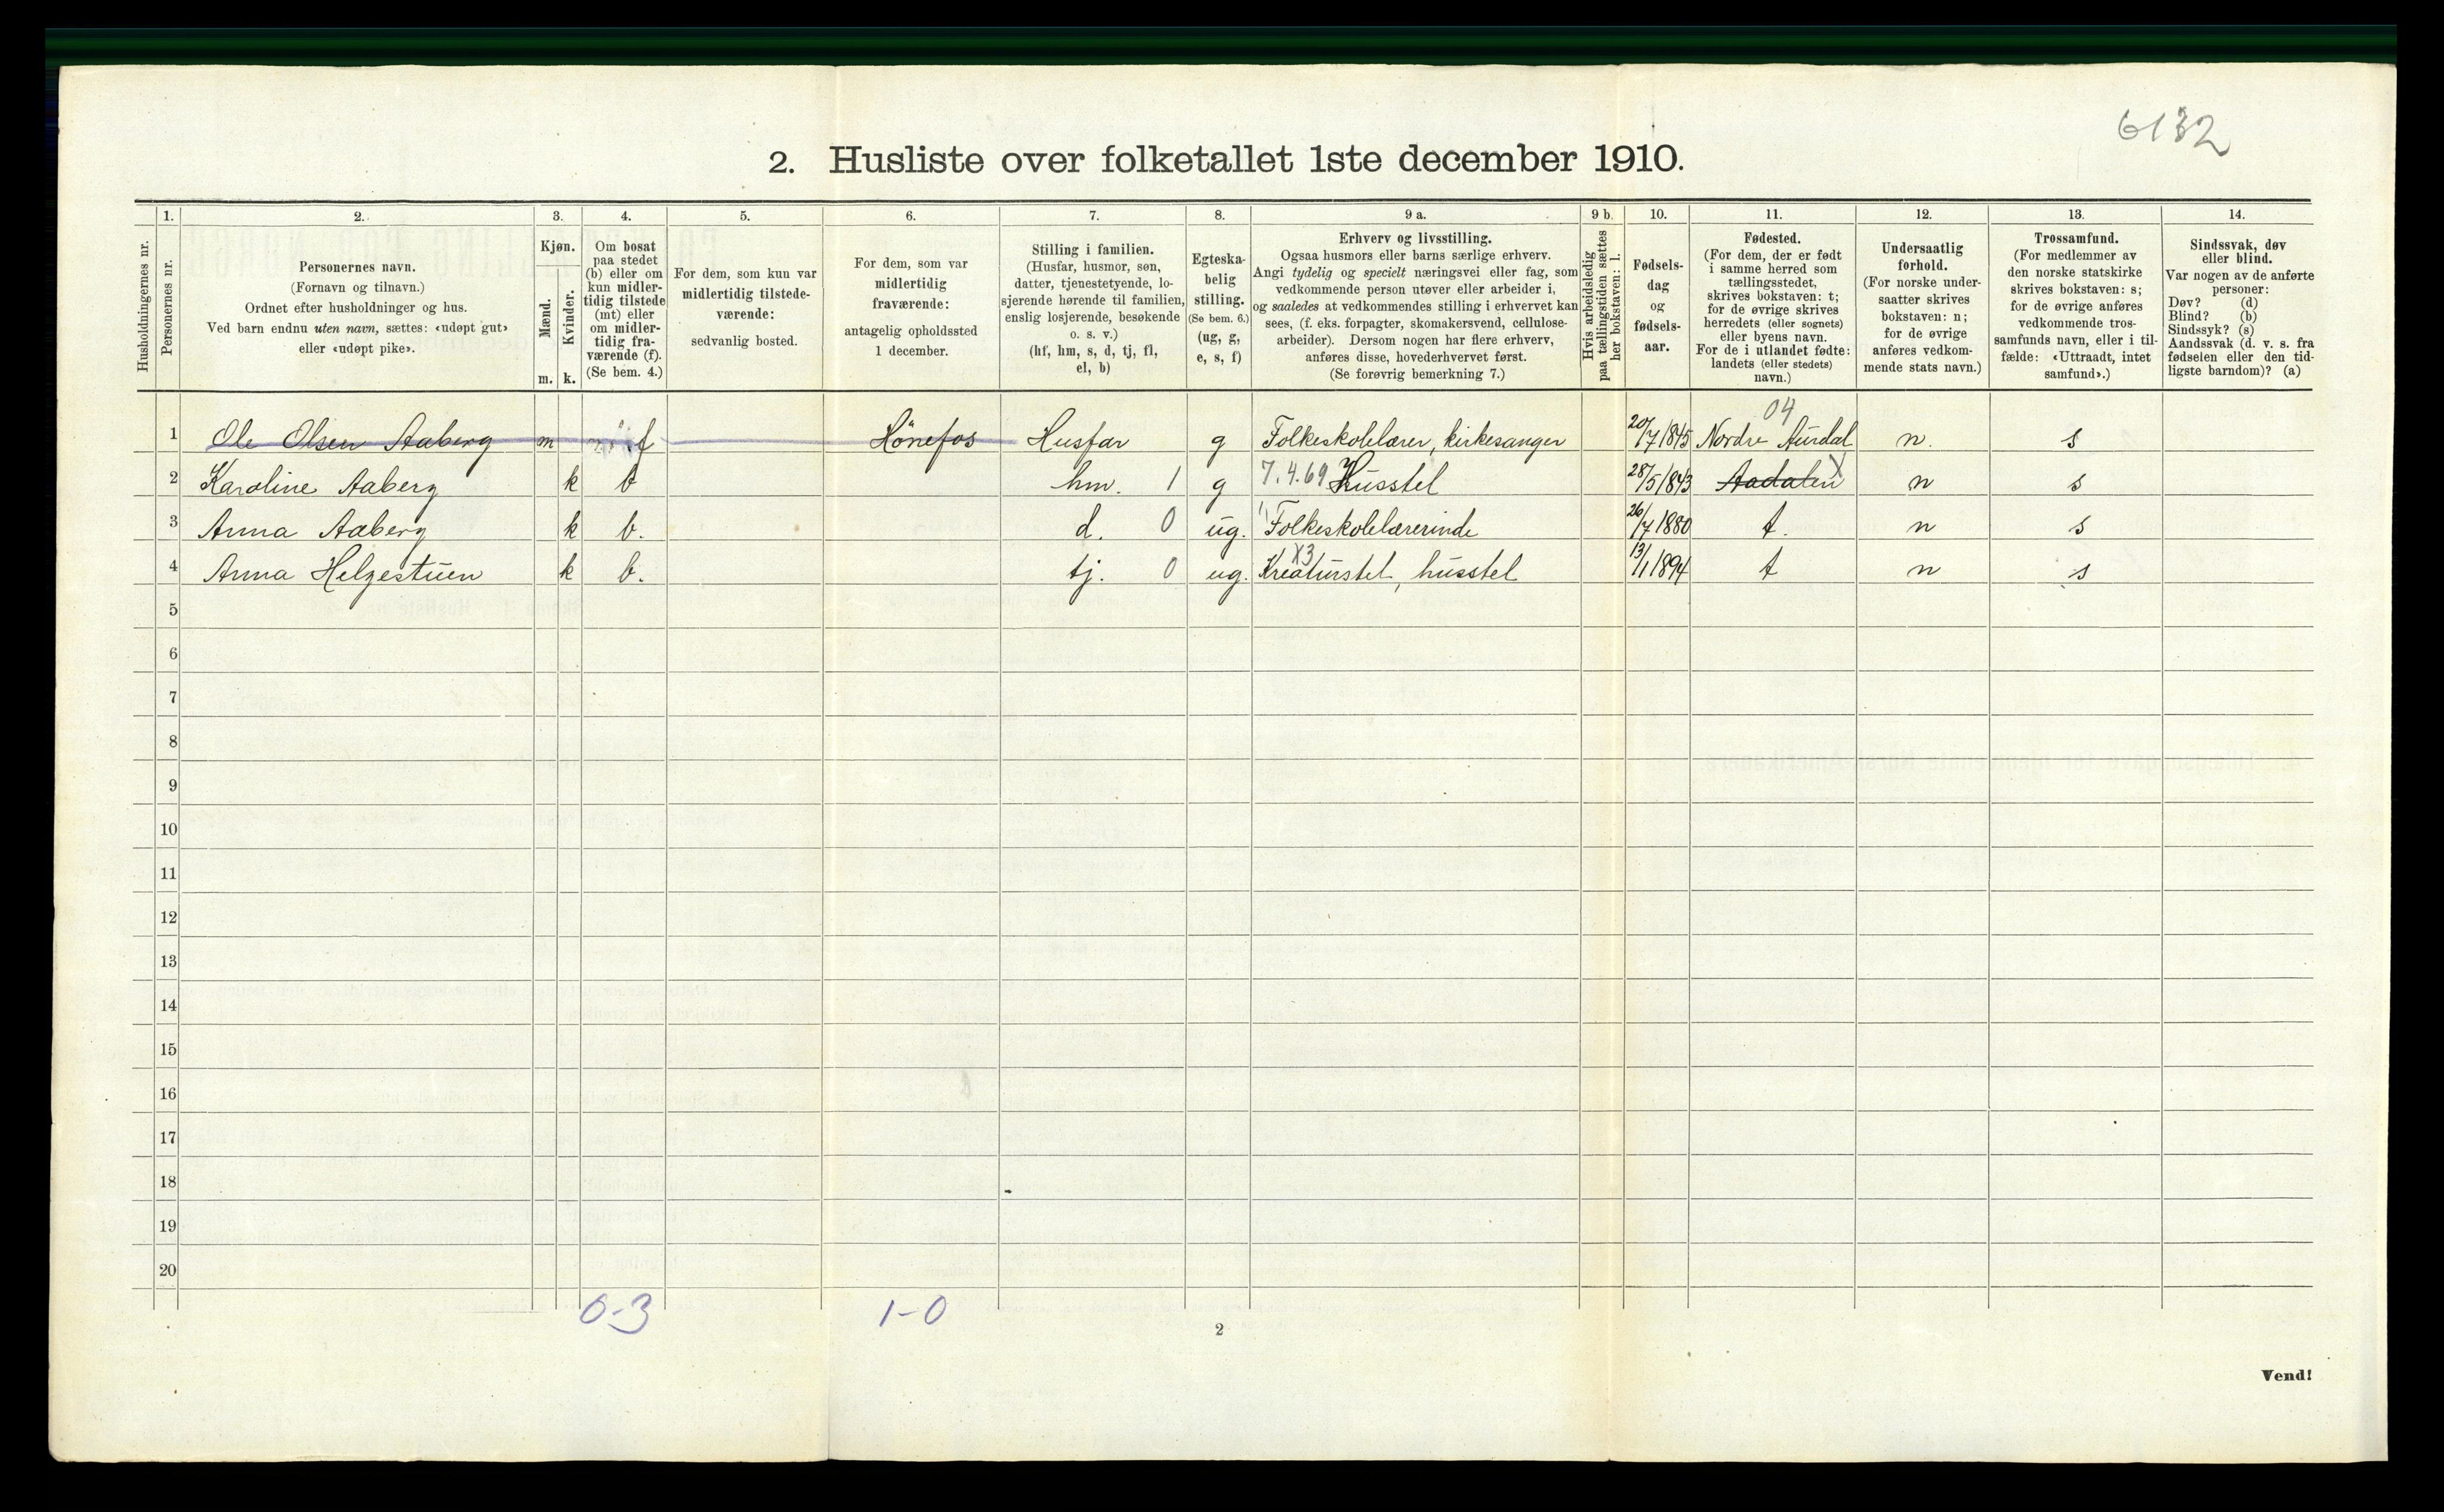 6132
2. Husliste over folketallet 1ste december 1910.
Husholdningernes nr.
1. Personernes nr.
2. Personernes navn.
(Fornavn og tilnavn.)
Ordnet efter husholdninger og hus.
Ved barn endnu uten navn, sættes: «udøpt gut»
eller «udøpt pike».
3. Kjøn.
Mænd. m.
Kvinder. k.
4. Om bosat
paa stedet
(b) eller om
kun midler-
tidig tilstede
(mt) eller
om midler-
tidig fra-
værende (f).
(Se bem. 4.)
5. For dem, som kun var
midlertidig tilstede-
værende:
sedvanlig bosted.
6. For dem, som var
midlertidig
fraværende:
antagelig opholdssted
1 december.
7. Stilling i familien.
(Husfar, husmor, søn,
datter, tjenestetyende, lo-
sjerende hørende til familien,
enslig losjerende, besøkende
o. s. v.)
(hf, hm, s, d, tj, fl,
el, b)
8. Egteska-
belig
stilling.
(Se bem. 6.)
(ug, g,
e, s, f)
9 a. Erhverv og livsstilling.
Ogsaa husmors eller barns særlige erhverv.
Angi tydelig og specielt næringsvei eller fag, som
vedkommende person utøver eller arbeider i,
og saaledes at vedkommendes stilling i erhvervet kan
sees, (f. eks. forpagter, skomakersvend, cellulose-
arbeider). Dersom nogen har flere erhverv,
anføres disse, hovederhvervet først.
(Se forøvrig bemerkning 7.)
9 b. Hvis arbeidsledig
paa tællingstiden sættes
her bokstaven: l.
10. Fødsels-
dag
og
fødsels-
aar.
11. Fødested.
(For dem, der er født
i samme herred som
tællingsstedet,
skrives bokstaven: t;
for de øvrige skrives
herredets (eller sognets)
eller byens navn.
For de i utlandet fødte:
landets (eller stedets)
navn.)
12. Undersaatlig
forhold.
(For norske under-
saatter skrives
bokstaven: n;
for de øvrige
anføres vedkom-
mende stats navn.)
13. Trossamfund.
(For medlemmer av
den norske statskirke
skrives bokstaven: s;
for de øvrige anføres
vedkommende tros-
samfunds navn, eller i til-
fælde: «Uttraadt, intet
samfund».)
14. Sindssvak, døv
eller blind.
Var nogen av de anførte
personer:
Døv? (d)
Blind? (b)
Sindssyk? (s)
Aandssvak (d. v. s. fra
fødselen eller den tid-
ligste barndom)? (a)
04
1 Ole Olsen Aaberg m f Hönefos Husfar g Folkeskolelærer, kirkesanger 20/7 1845 Nordre Aurdal n. s
2 Karoline Aaberg k b hm. 1 g 7.4.69 Husstel 28/5 1843 Aadalen n s
3 Anna Aaberg k b. d. 0 ug. Folkeskolelærerinde 26/7 1880 t. n s
4 Anna Helgestuen k b. tj. 0 ug. X3 Kreaturstel, husstel 13/1 1894 t n s
5
6
7
8
9
10
11
12
13
14
15
16
17
18
19
20
0-3 1-0
2
Vend!